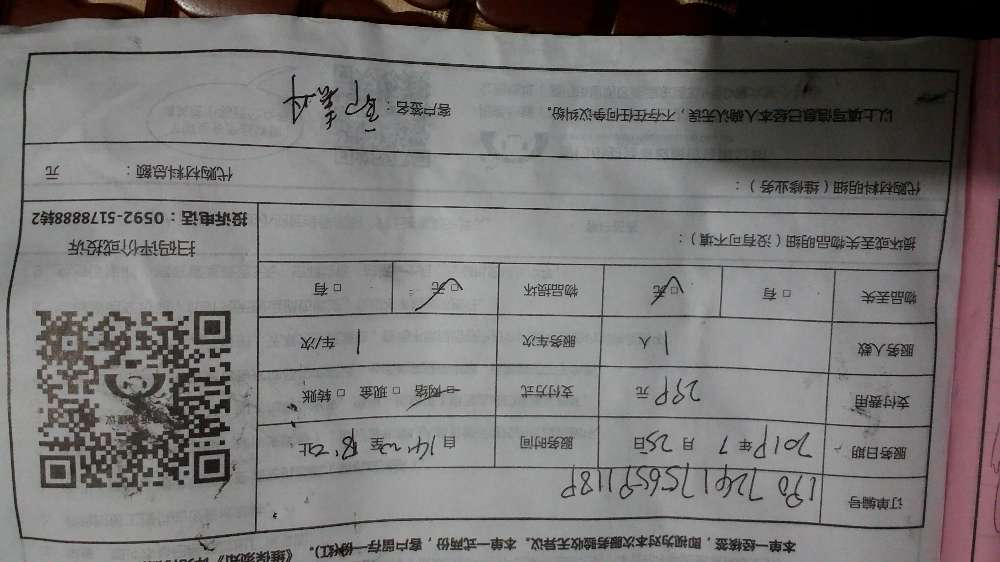 本单一经核签，即视为对本次服务验收无异议。本单一式两份，客户留存一份(红)。《维保须知》
订单编号 1907241756591189
服务日期 2019年7月25日 服务时间 自 至
支付费用 299元 支付方式 □网络 □现金 □转账
服务人数 1人 服务车次 1车/次
物品丢失 □有 □无 物品损坏 □无 □有
损坏或丢失物品明细（没有可不填）：
扫码评价或投诉
投诉电话：0592-5178888转2
代购材料明细（维修业务）： 代购材料总额： 元
以上填写信息已经本人确认无误，不存在任何争议纠纷。 客户签名：